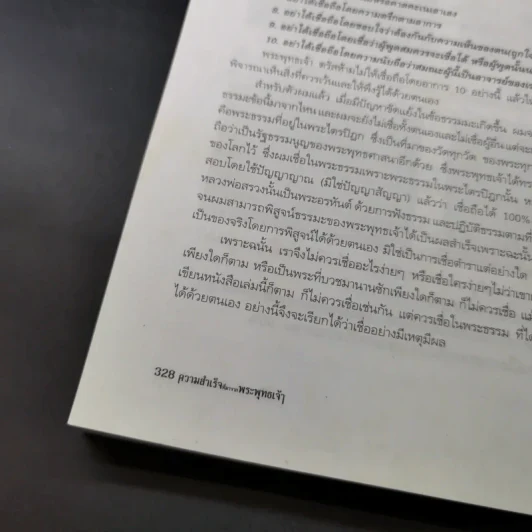 8. อย่าได้เชื่อถือโดยความตรึกตามอาการ
9. อย่าได้เชื่อถือโดยชอบใจว่าต้องกันกับความเห็นของตน
10. อย่าได้เชื่อถือโดยเชื่อว่าผู้พูดสมควรจะเชื่อได้ หรือผู้พูดนั้น
พระพุทธเจ้า ตรัสห้ามไม่ให้เชื่อถือโดยอาการ 10 อย่างนี้ แล้ว
พิจารณาเห็นสิ่งที่ควรเว้นและให้พึ่งรู้ได้ด้วยตนเอง
สำหรับตัวผมแล้ว เมื่อมีปัญหาขัดแย้งในข้อธรรมมะเกิดขึ้น
ธรรมมะข้อนี้มาจากไหน และผมจะยังไม่เชื่อทั้งตนเองและไม่เชื่อผู้อื่น
คือพระธรรมที่อยู่ในพระไตรปิฎก ซึ่งเป็นที่มาของวัดทุกวัด ของพระทุก
ถือว่าเป็นรัฐธรรมนูญของพระพุทธศาสนาอีกด้วย ซึ่งพระพุทธเจ้าได้
ของโลกไว้ ซึ่งผมเชื่อในพระธรรมเพราะพระธรรมในพระไตรปิฎกนั้น
สอบโดยใช้ปัญญาญาณ (มิใช่ปัญญาสัญญา) แล้วว่า เชื่อถือได้ 100%
หลวงพ่อสรวงนั้นเป็นพระอรหันต์ ด้วยการฟังธรรม และปฏิบัติธรรมตามที่
จนผมสามารถพิสูจน์ธรรมะของพระพุทธเจ้าได้เป็นผลสำเร็จเพราะฉะนั้น
เป็นของจริงโดยการพิสูจน์ได้ด้วยตนเอง มิใช่เป็นการเชื่อตำราแต่อย่างใด
เพราะฉะนั้น เราจึงไม่ควรเชื่ออะไรง่ายๆ หรือเชื่อใครง่ายๆไม่ว่า
เพียงใดก็ตาม หรือเป็นพระที่บวชมานานซักเพียงใดก็ตาม ก็ไม่ควรเชื่อ
เขียนหนังสือเล่มนี้ก็ตาม ก็ไม่ควรเชื่อเช่นกัน แต่ควรเชื่อในพระธรรม
ได้ด้วยตนเอง อย่างนี้จึงจะเรียกได้ว่าเชื่ออย่างมีเหตุมีผล
328 ความสำเร็จ พระพุทธเจ้า